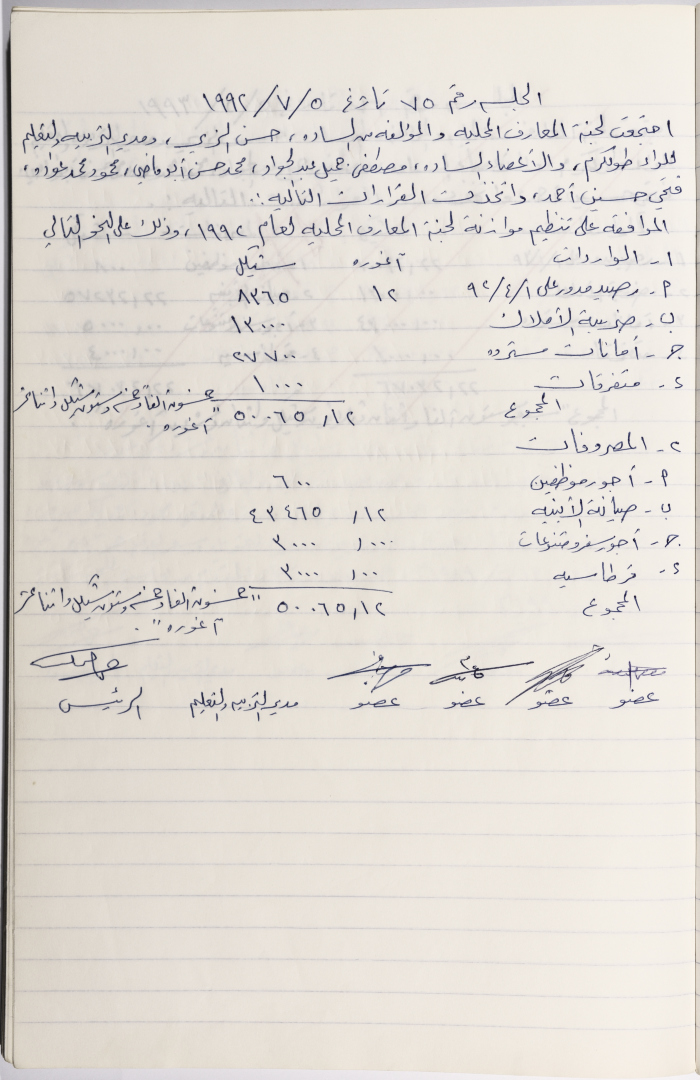 الجلسه رقم ٧٥ تاريخ ٥/٧/١٩٩٢
اجتمعت لجنة المعارف المحليه والمؤلفه من الساده، حسن الزير، ومدير التربيه والتعليم
للواء طولكرم، والأعضاء الساده، مصطفى جميل عبد الجواد، محمد حسن أبو ماضي، محمود محمد عواده،
فتحي حسين أحمد، واتخذت القرارات التاليه:.
الموافقه على تنظيم موازنة لجنة المعارف المحليه لعام ١٩٩٢، وذلك على النحو التالي
١- الواردات آغوره شيكل
٢- رصيد مدور على ٩٢/٤/١ ١٢ ٨٣٦٥
ب- ضريبة الأملاك ١٣٠٠٠
ج- أمانات مسترده ٢٧٧٠٠
ء- متفرقات ١٠٠٠
المجموع ٥٠٠٦٥/١٢ "خمسون الفا وخمسه وستون شيكل واثنا عشر
آغوره".
٢- المصروفات
٢- أجور موظفين ٦٠٠
ب- صيانة الأبنيه ١٢/ ٤٣٤٦٥
ج- أجور سفر ومتنوعات ٠٠٠/ ٣٠٠٠
ء- قرطاسيه ٠٠/ ٣٠٠٠
المجموع ٥٠٠٦٥/١٢ "خمسون الفا وخمسه وستون شيكل واثنا عشر
آغوره".
عضو عضو عضو عضو مدير التربيه والتعليم الرئيس